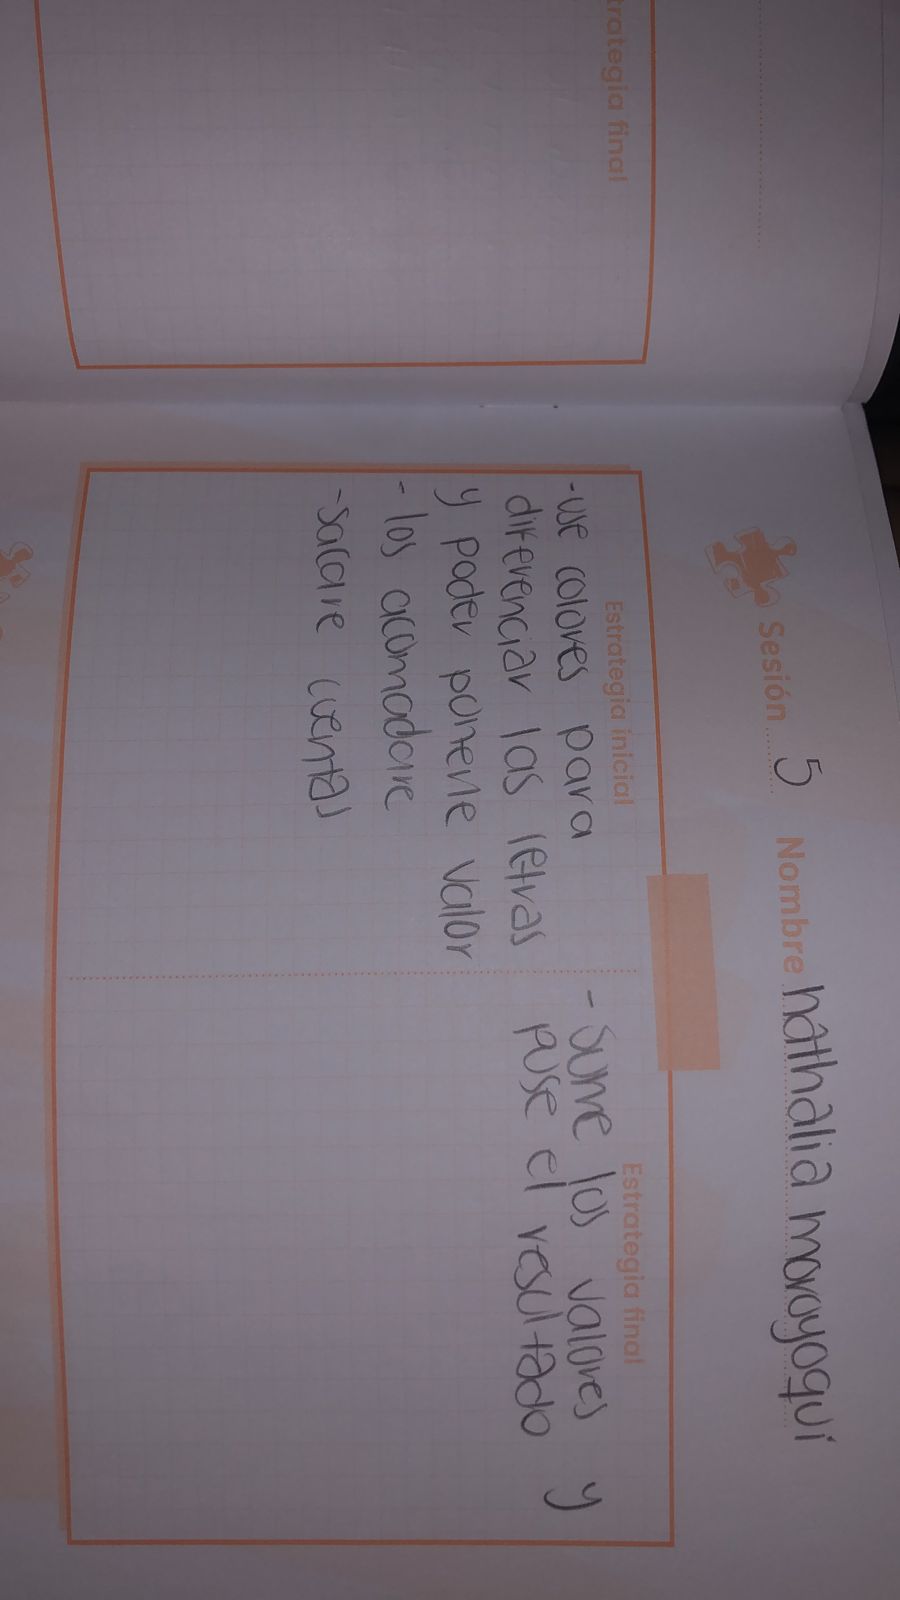 trategia final
Sesión 5 Nombre nathalia moroyoqui
Estrategia inicial
-use colores para
diferenciar las letras
y poder ponerle valor
- los acomodare
-sacare cuentas
Estrategia final
- Sume los valores y
puse el resultado